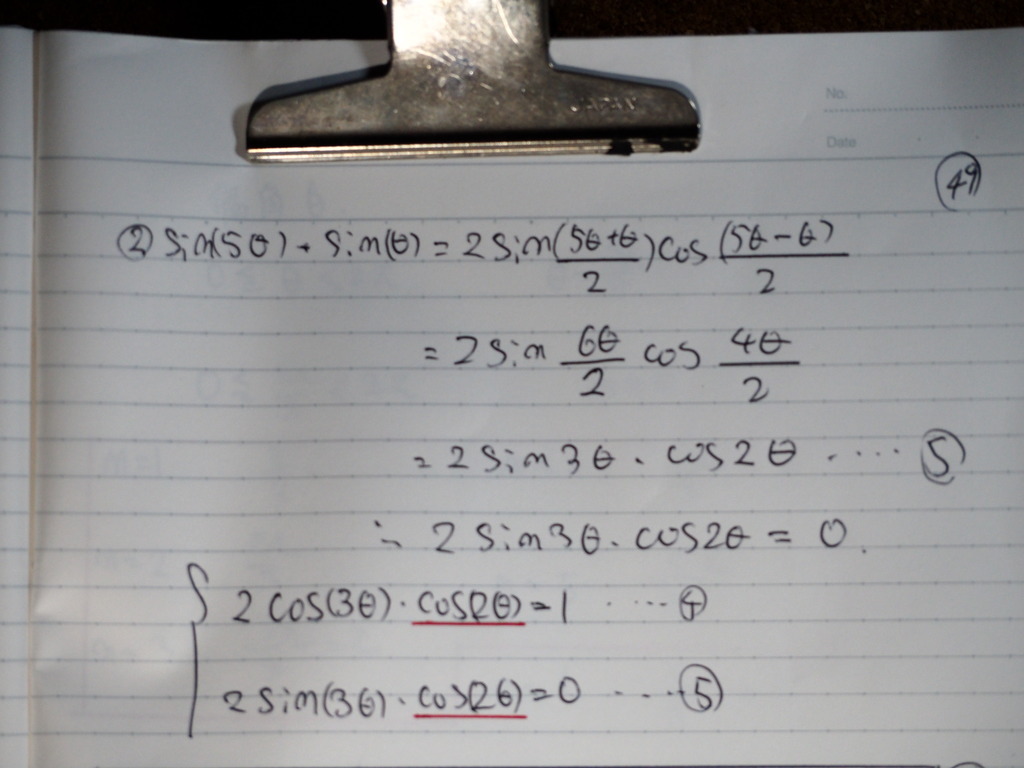 JAPAN
No.
Date
㊾
② Sin(5θ) + Sin(θ) = 2 Sin(5θ+θ/2) cos (5θ-θ)/2
= 2 Sin 6θ/2 cos 4θ/2
= 2 Sin 3θ · cos 2θ ····· ⑤
∴ 2 Sin 3θ · cos 2θ = 0.
{ 2 cos(3θ) · cos(2θ) = 1 ···· ④
2 Sin(3θ) · cos(2θ) = 0 ···· ⑤